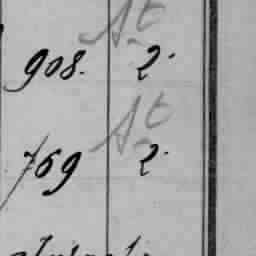 At
908. 2.
At
769 2.